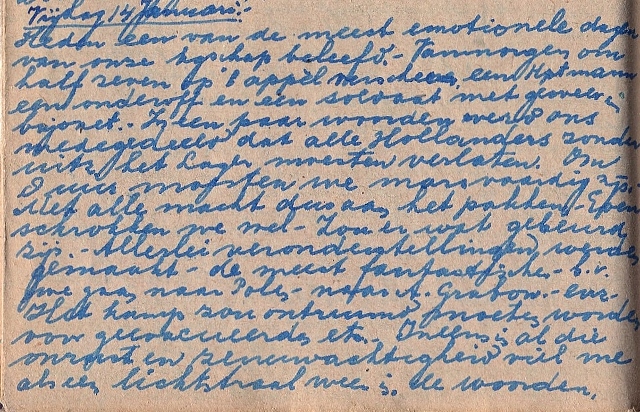 Vrijdag 14 Januari:
Heden een van de meest emotionele dagen
van onze kgschap beleefd. - Vanmorgen om
half zeven op 't appèl verscheen, een Hptmann
een onderoff en een soldaat met geweer en
bajonet. - In een paar woorden werd ons
medegedeeld, dat alle Hollanders zonder
uitz. het Lager moesten verlaten. Om
8 uur moesten we mars vaardig zijn.
Met alle macht dus aan het pakken. Even
schrokken we wel - Zou er wat gebeurd
zijn. Allerlei veronderstellingen werden
gemaakt - de meest fantastische. - b.v.
we gaan naar Polen - naar Grabow. - enz -
Het kamp zou ontruimd moeten worden
voor geëvacueerden etc. Ineens in al die
onrust en zenuwachtigheid viel me
als een lichtstraal weer in, de woorden,